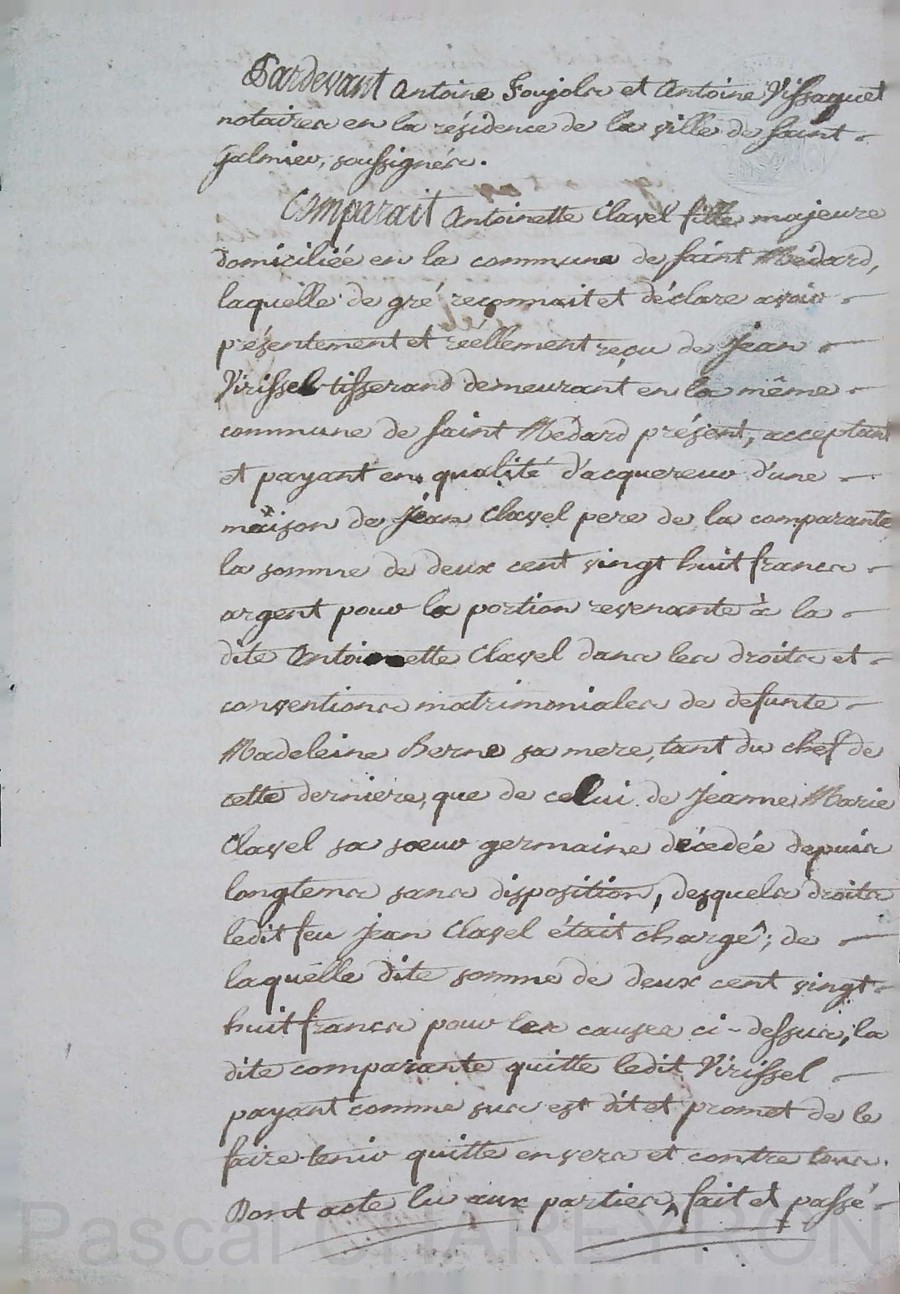 Pardevant Antoine Foujols et Antoine Vissaguet
notaires en la résidence de la ville de saint
Galmier, soussignés.
Comparait Antoinette Clavel fille majeure
domiciliée en la commune de saint Médard,
laquélle de gré reconnait et déclare avoir
présentement et réellement reçu de Jean
Virissel tisserand demeurant en la même
commune de saint Médard présent, acceptant
et payant en qualité d'acquereur d'une
maison de Jean Clavel pere de la comparante
la somme de deux cent vingt huit francs
argent pour la portion revenante à la
dite Antoinette Clavel dans les droits et
conventions matrimoniales de defunte
Madeleine Berne sa mere, tant du chef de
cette derniere, que de celui de Jeanne Marie
Clavel sa soeur germaine décédée depuis
longtems sans disposition, desquels droits
ledit feu Jean Clavel était chargé; de
laquélle dite somme de deux cent vingt
huit francs pour les causes ci-dessus, la
dite comparante quitte ledit Virissel
payant comme sus est dit et promet de le
faire tenir quitte envers et contre tous.
Dont acte lu aux parties, fait et passé
Pascal CHAREYRON